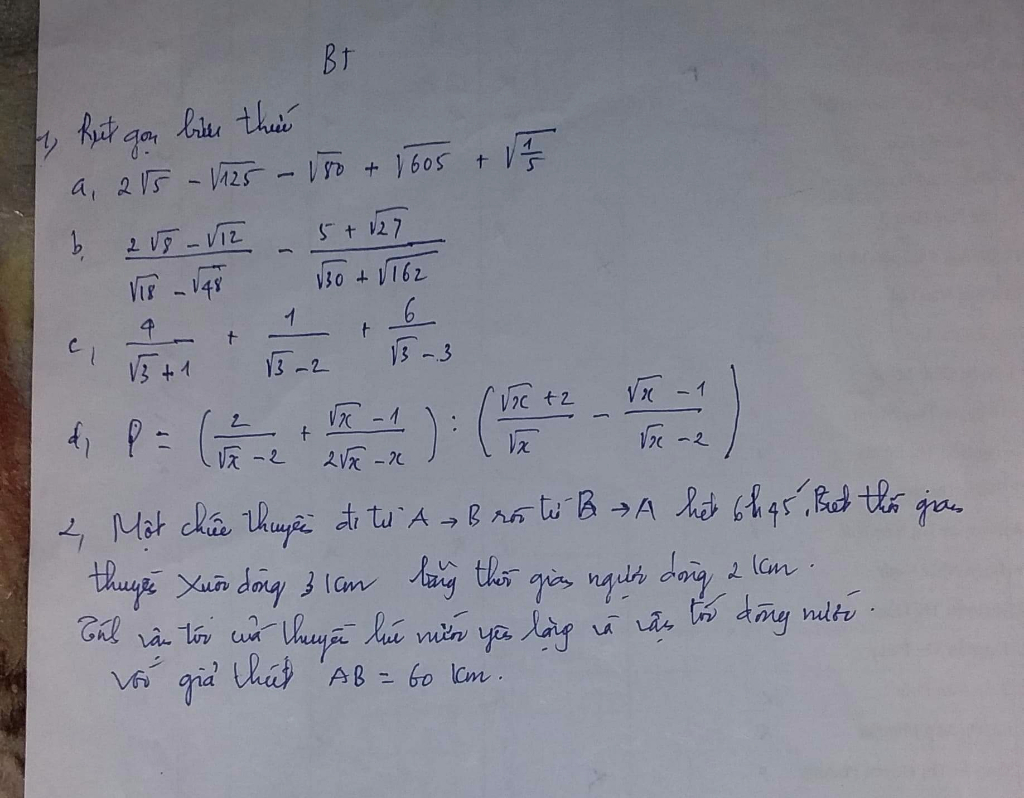 BT
1, Rút gọn biểu thức
a, 2√5 - √125 - √80 + √605 + √(1/5)
b, (2√8 - √12)/(√18 - √48) - (5 + √27)/(√30 + √162)
c, 4/(√3 + 1) + 1/(√3 - 2) + 6/(√3 - 3)
d, P = (2/(√x - 2) + (√x - 1)/(2√x - x)) : ((√x + 2)/√x - (√x - 1)/(√x - 2))
2, Một chiếc thuyền đi từ A → B rồi từ B → A hết 6h45'. Biết thời gian
thuyền xuôi dòng 3 km bằng thời gian ngược dòng 2 km.
Tính vận tốc của thuyền khi nước yên lặng và vận tốc dòng nước.
Với giả thiết AB = 60 km.